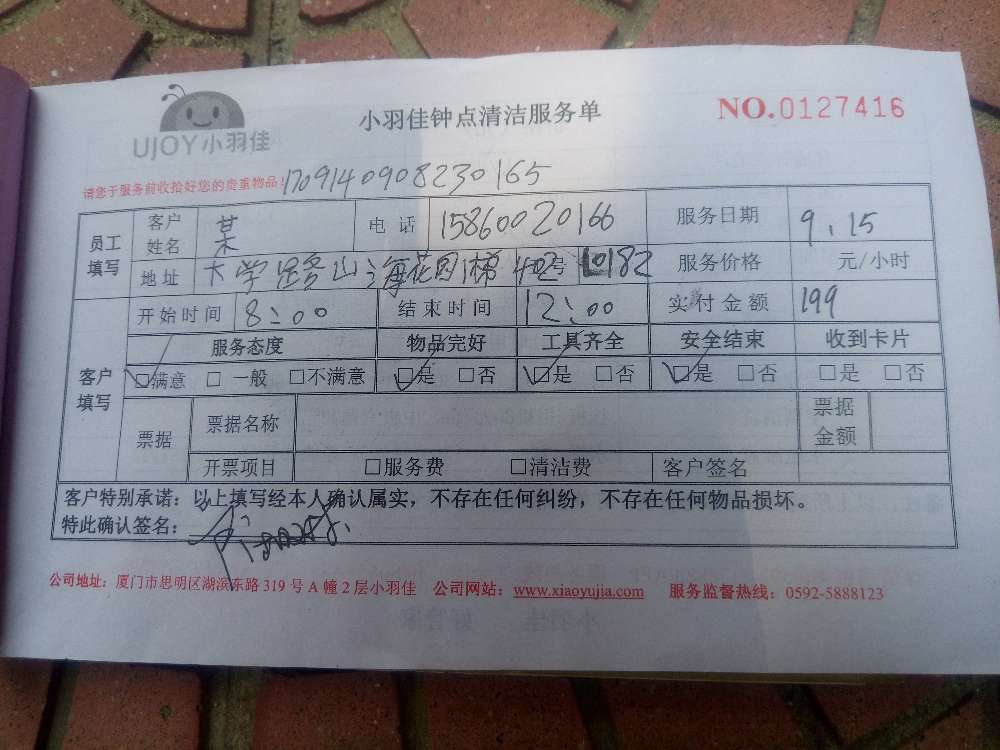 UJOY小羽佳
小羽佳钟点清洁服务单
NO.0127416
请您于服务前收拾好您的贵重物品!1709140908230165
员工填写 客户姓名 某 电话 15860020166 服务日期 9.15
地址 大学路山海花园 梯 402 0182 服务价格 元/小时
开始时间 8:00 结束时间 12:00 实付金额 199
客户填写 服务态度 物品完好 工具齐全 安全结束 收到卡片
☑满意 □一般 □不满意 ☑是 □否 ☑是 □否 ☑是 □否 □是 □否
票据 票据名称 票据金额
开票项目 □服务费 □清洁费 客户签名
客户特别承诺：以上填写经本人确认属实，不存在任何纠纷，不存在任何物品损坏。
特此确认签名：
公司地址：厦门市思明区湖滨东路319号A幢2层小羽佳 公司网站：www.xiaoyujia.com 服务监督热线：0592-5888123